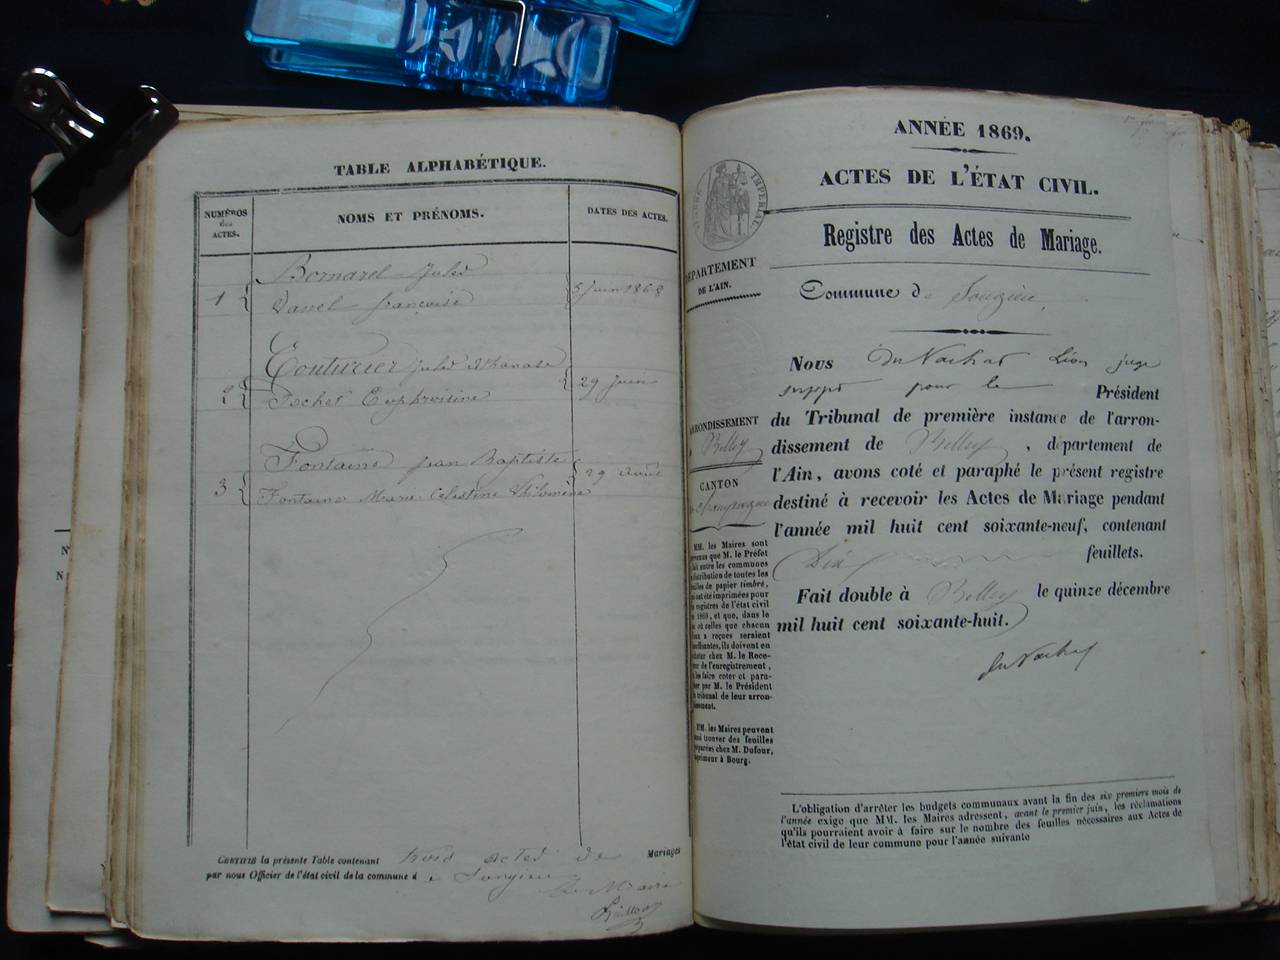 TABLE ALPHABÉTIQUE.
NUMÉROS
des
ACTES.
NOMS ET PRÉNOMS.
DATES DES ACTES.
1
Bornarel Jules
Vanel françoise
5 juin 1868
2
Couturier Jules Athanase
Pochet Euphroisine
29 juin
3
Fontaine Jean Baptiste
Fontaine Marie Celestine Philomène
29 avril
CERTIFIÉ la présente Table contenant trois actes de Mariages
par nous Officier de l'état civil de la commune de Songieu
Le Maire
ANNÉE 1869.
ACTES DE L'ÉTAT CIVIL.
Registre des Actes de Mariage.
IMPÉRIAL
DÉPARTEMENT
DE L'AIN.
Commune de Songieu
Nous Du Nachat Léon juge
suppt pour le Président
du Tribunal de première instance de l'arron-
dissement de Belley, département de
l'Ain, avons coté et paraphé le présent registre
destiné à recevoir les Actes de Mariage pendant
l'année mil huit cent soixante-neuf, contenant
Dix feuillets.
Fait double à Belley le quinze décembre
mil huit cent soixante-huit.
Du Nachat
ARRONDISSEMENT
Belley
CANTON
de Champagne
MM. les Maires sont
prévenus que M. le Préfet
fait entre les communes
distribution de toutes les
feuilles de papier timbré,
qui ont été imprimées pour
les registres de l'état civil
de 1869, et que, dans le
cas où celles que chacun
d'eux a reçues seraient
insuffisantes, ils doivent en
acheter chez M. le Rece-
veur de l'enregistrement,
et les faire coter et para-
pher par M. le Président
du tribunal de leur arron-
dissement.
MM. les Maires peuvent
aussi trouver des feuilles
préparées chez M. Dufour,
imprimeur à Bourg.
L'obligation d'arrêter les budgets communaux avant la fin des six premiers mois de
l'année exige que MM. les Maires adressent, avant le premier juin, les réclamations
qu'ils pourraient avoir à faire sur le nombre des feuilles nécessaires aux Actes de
l'état civil de leur commune pour l'année suivante